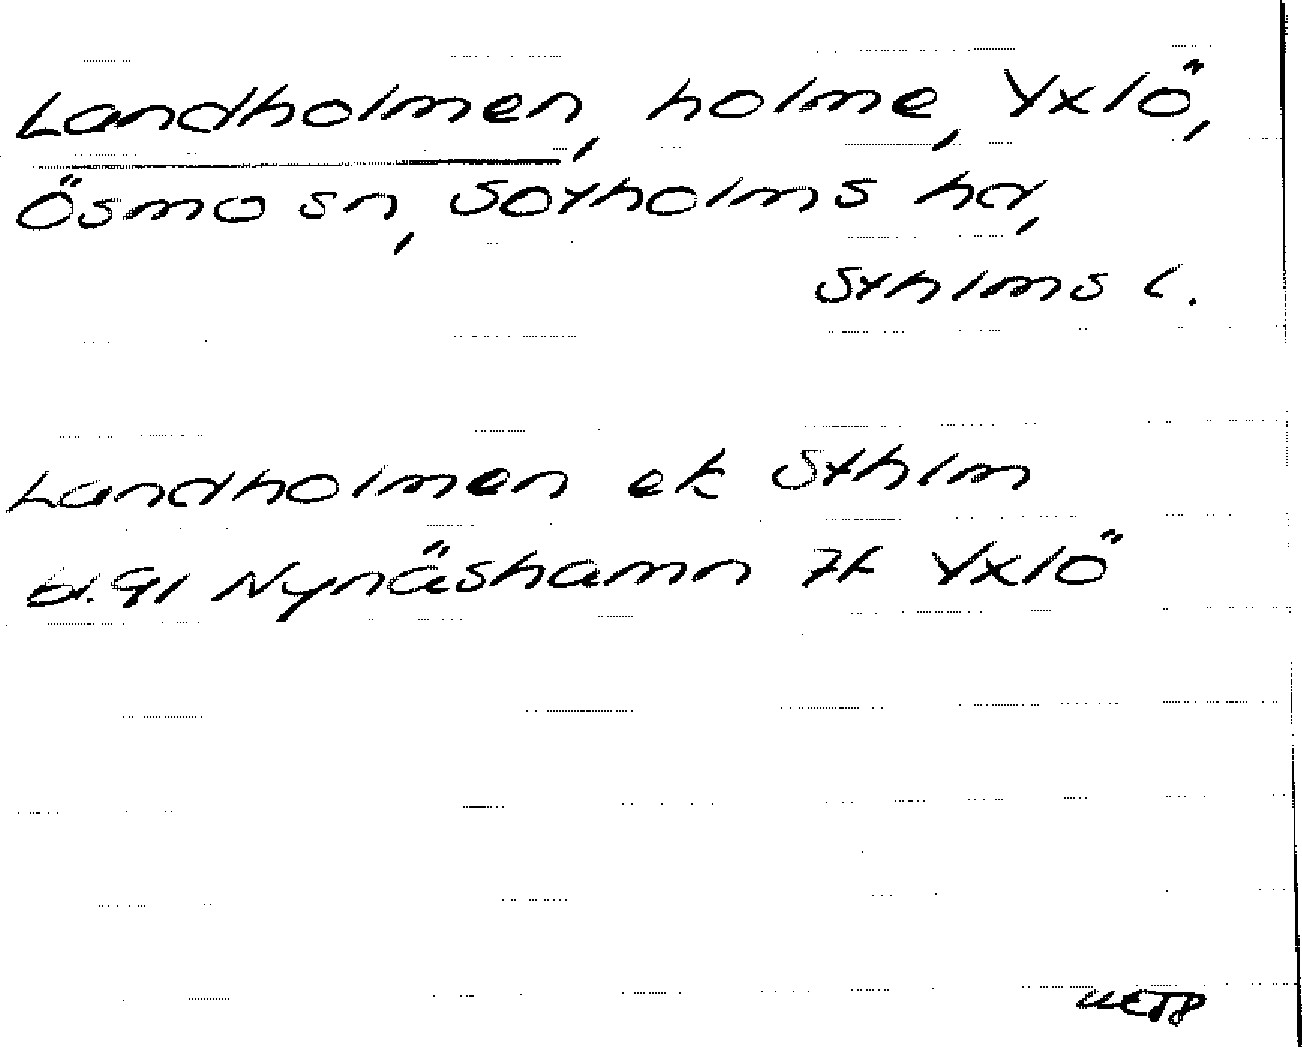 Landholmen, holme, Yxlö,
Ösmo sn, Sotholms hd,
Sthlms l.
Landholmen ek Sthlm
bl. 91 Nynäshamn 7f Yxlö